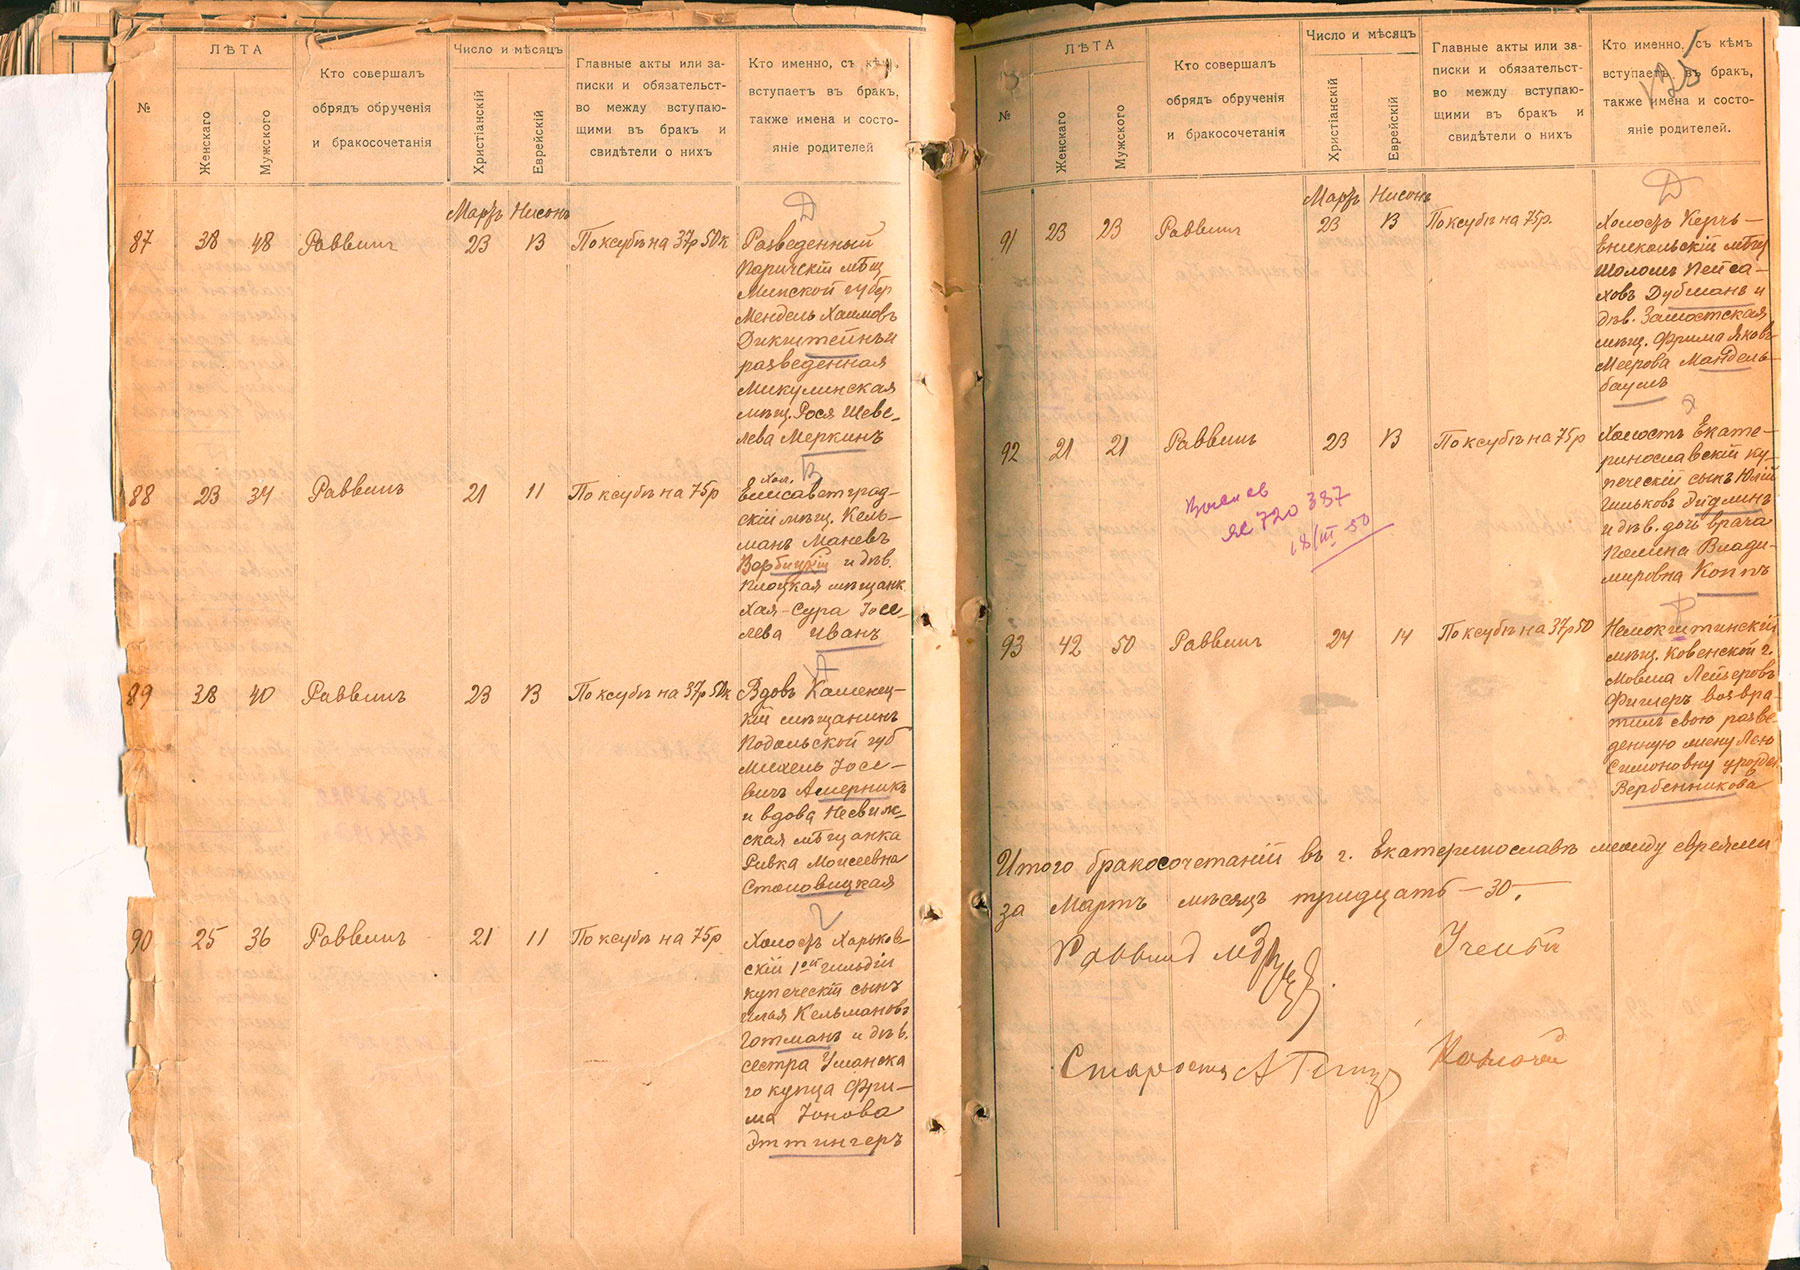 №
ЛѢТА
Женскаго
Мужского
Кто совершалъ
обрядъ обрученія
и бракосочетанія
Число и мѣсяцъ
Христіанскій
Еврейскій
Главные акты или за-
писки и обязательст-
во между вступаю-
щими въ бракъ и
свидѣтели о нихъ
Кто именно, съ кѣмъ,
вступаетъ въ бракъ,
также имена и состо-
яніе родителей
Мартъ Нисонъ
87 38 48 Раввинъ 23 13 По ксубѣ на 37р 50к
Разведенный
Паричскій мѣщ
Минской губер
Мендель Хаимовъ
Дикштейнъ и
разведенная
Микулинская
мѣщ. Рося Шеве-
лева Меркинъ
88 23 34 Раввинъ 21 11 По ксубѣ на 75р
Хол.
Елисаветград-
скій мѣщ. Кель-
манъ Маневъ
Ворбицкій и дѣв.
Плоцкая мѣщанк
Хая-Сура Іосе-
лева Иванъ
89 38 40 Раввинъ 23 13 По ксубѣ на 37р 50к
Вдовъ Каменец-
кій мѣщанинъ
Подольской губ
Михель Іосе-
вичъ Америкъ
и вдова Несвиж-
ская мѣщанка
Ривка Моисеевна
Столовицкая
90 25 36 Раввинъ 21 11 По ксубѣ на 75р
Холостъ Харьков-
скій 1ой гильдіи
купеческій сынъ
Илая Кельмановъ
Готманъ и дѣв.
сестра Уманска
го купца Фри-
ма Іонова
Эттингеръ
№
ЛѢТА
Женскаго
Мужского
Кто совершалъ
обрядъ обрученія
и бракосочетанія
Число и мѣсяцъ
Христіанскій
Еврейскій
Главные акты или за-
писки и обязательст-
во между вступаю-
щими въ бракъ и
свидѣтели о нихъ
Кто именно, съ кѣмъ
вступаетъ въ бракъ,
также имена и состо-
яніе родителей.
Мартъ Нисонъ
91 23 23 Раввинъ 23 13 По ксубѣ на 75р.
Холостъ Керчь-
Еникольскій мѣщ
Шоломъ Пейса-
ховъ Дубманъ и
дѣв. Замостская
мѣщ. Фрима Яковъ
Меерова Мандель-
баумъ
92 21 21 Раввинъ 23 13 По ксубѣ на 75р
Холостъ Екате-
ринославскій ку-
печескій сынъ Юлій
Ильковъ Дидлинъ
и дѣв. дочь врача
Полина Влади-
мировна Коппъ
720 387
18/III 50
93 42 50 Раввинъ 24 14 По ксубѣ на 37р 50
мѣщ. Ковенской г.
Мовша Лейзеровъ
Фишеръ возвра-
тилъ свою разве-
денную жену Лею
Симоновну урожд.
Вербенникова
Итого бракосочетаній въ г. Екатеринославѣ между евреями
за Мартъ мѣсяцъ тридцать -30-.
Раввинъ
Староста